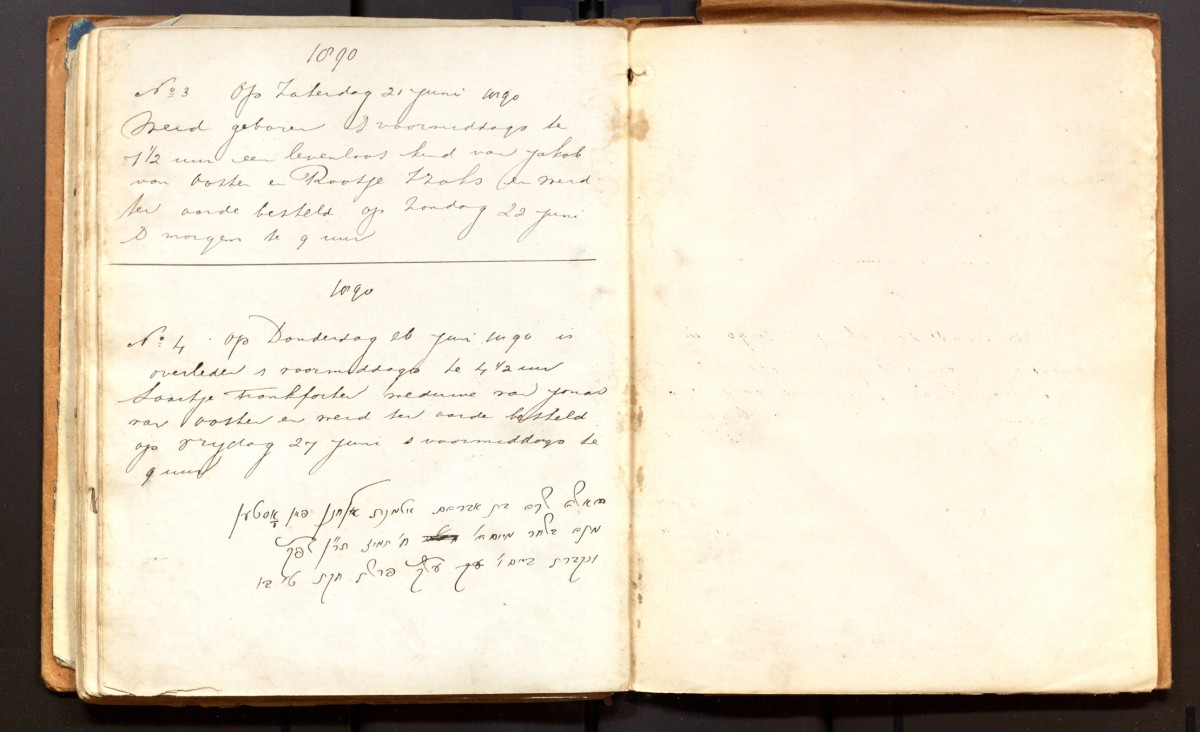 1890
No 3 Op Zaterdag 21 Juni 1890
Werd geboren s voormiddags te
1 1/2 uur een levenloos kind van Jakob
van Oosten en Roosje Izaks en werd
ter aarde besteld op Zondag 22 Juni
s morgens te 9 uur
1890
No 4 Op Donderdag 26 Juni 1890 is
overleden s voormiddags te 4 1/2 uur
Saartje Frankforter weduwe van Jonas
van Oosten en werd ter aarde besteld
op Vrijdag 27 Juni s voormiddags te
9 uur
בת אברהם אלמנת אלחנן פאן אָסטען
ח' תמוז תר"ן לפק
ונקברת ביום ו' פרשת חקת